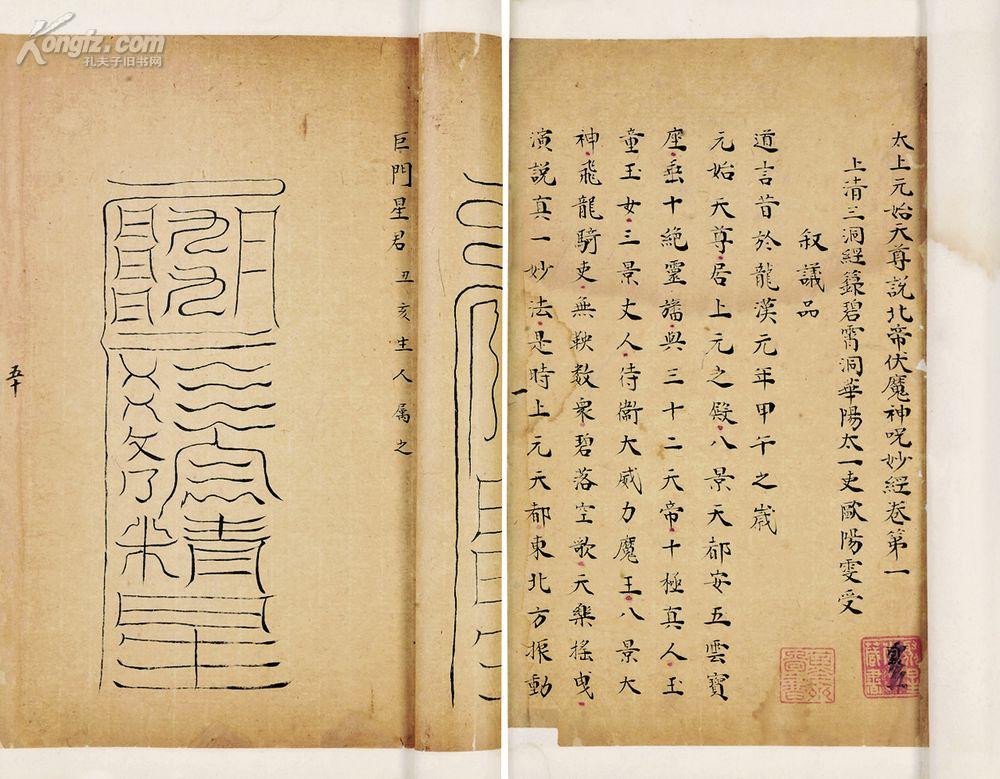 太上元始天尊說北帝伏魔神呪妙經卷第一
上清三洞經籙碧霄洞華陽太一吏歐陽雯受
叙議品
道言昔於龍漢元年甲午之歲
元始天尊居上元之殿八景天都安五雲寶
座垂十絕靈旛與三十二天帝十極真人玉
童玉女三景丈人待衞大威力魔王八景大
神飛龍騎吏無鞅數衆碧落空歌天樂搖曳
演說真一妙法是時上元天都東北方振動
一
巨門星君 丑亥生人属之
五十
Kongfz.com
孔夫子旧书网